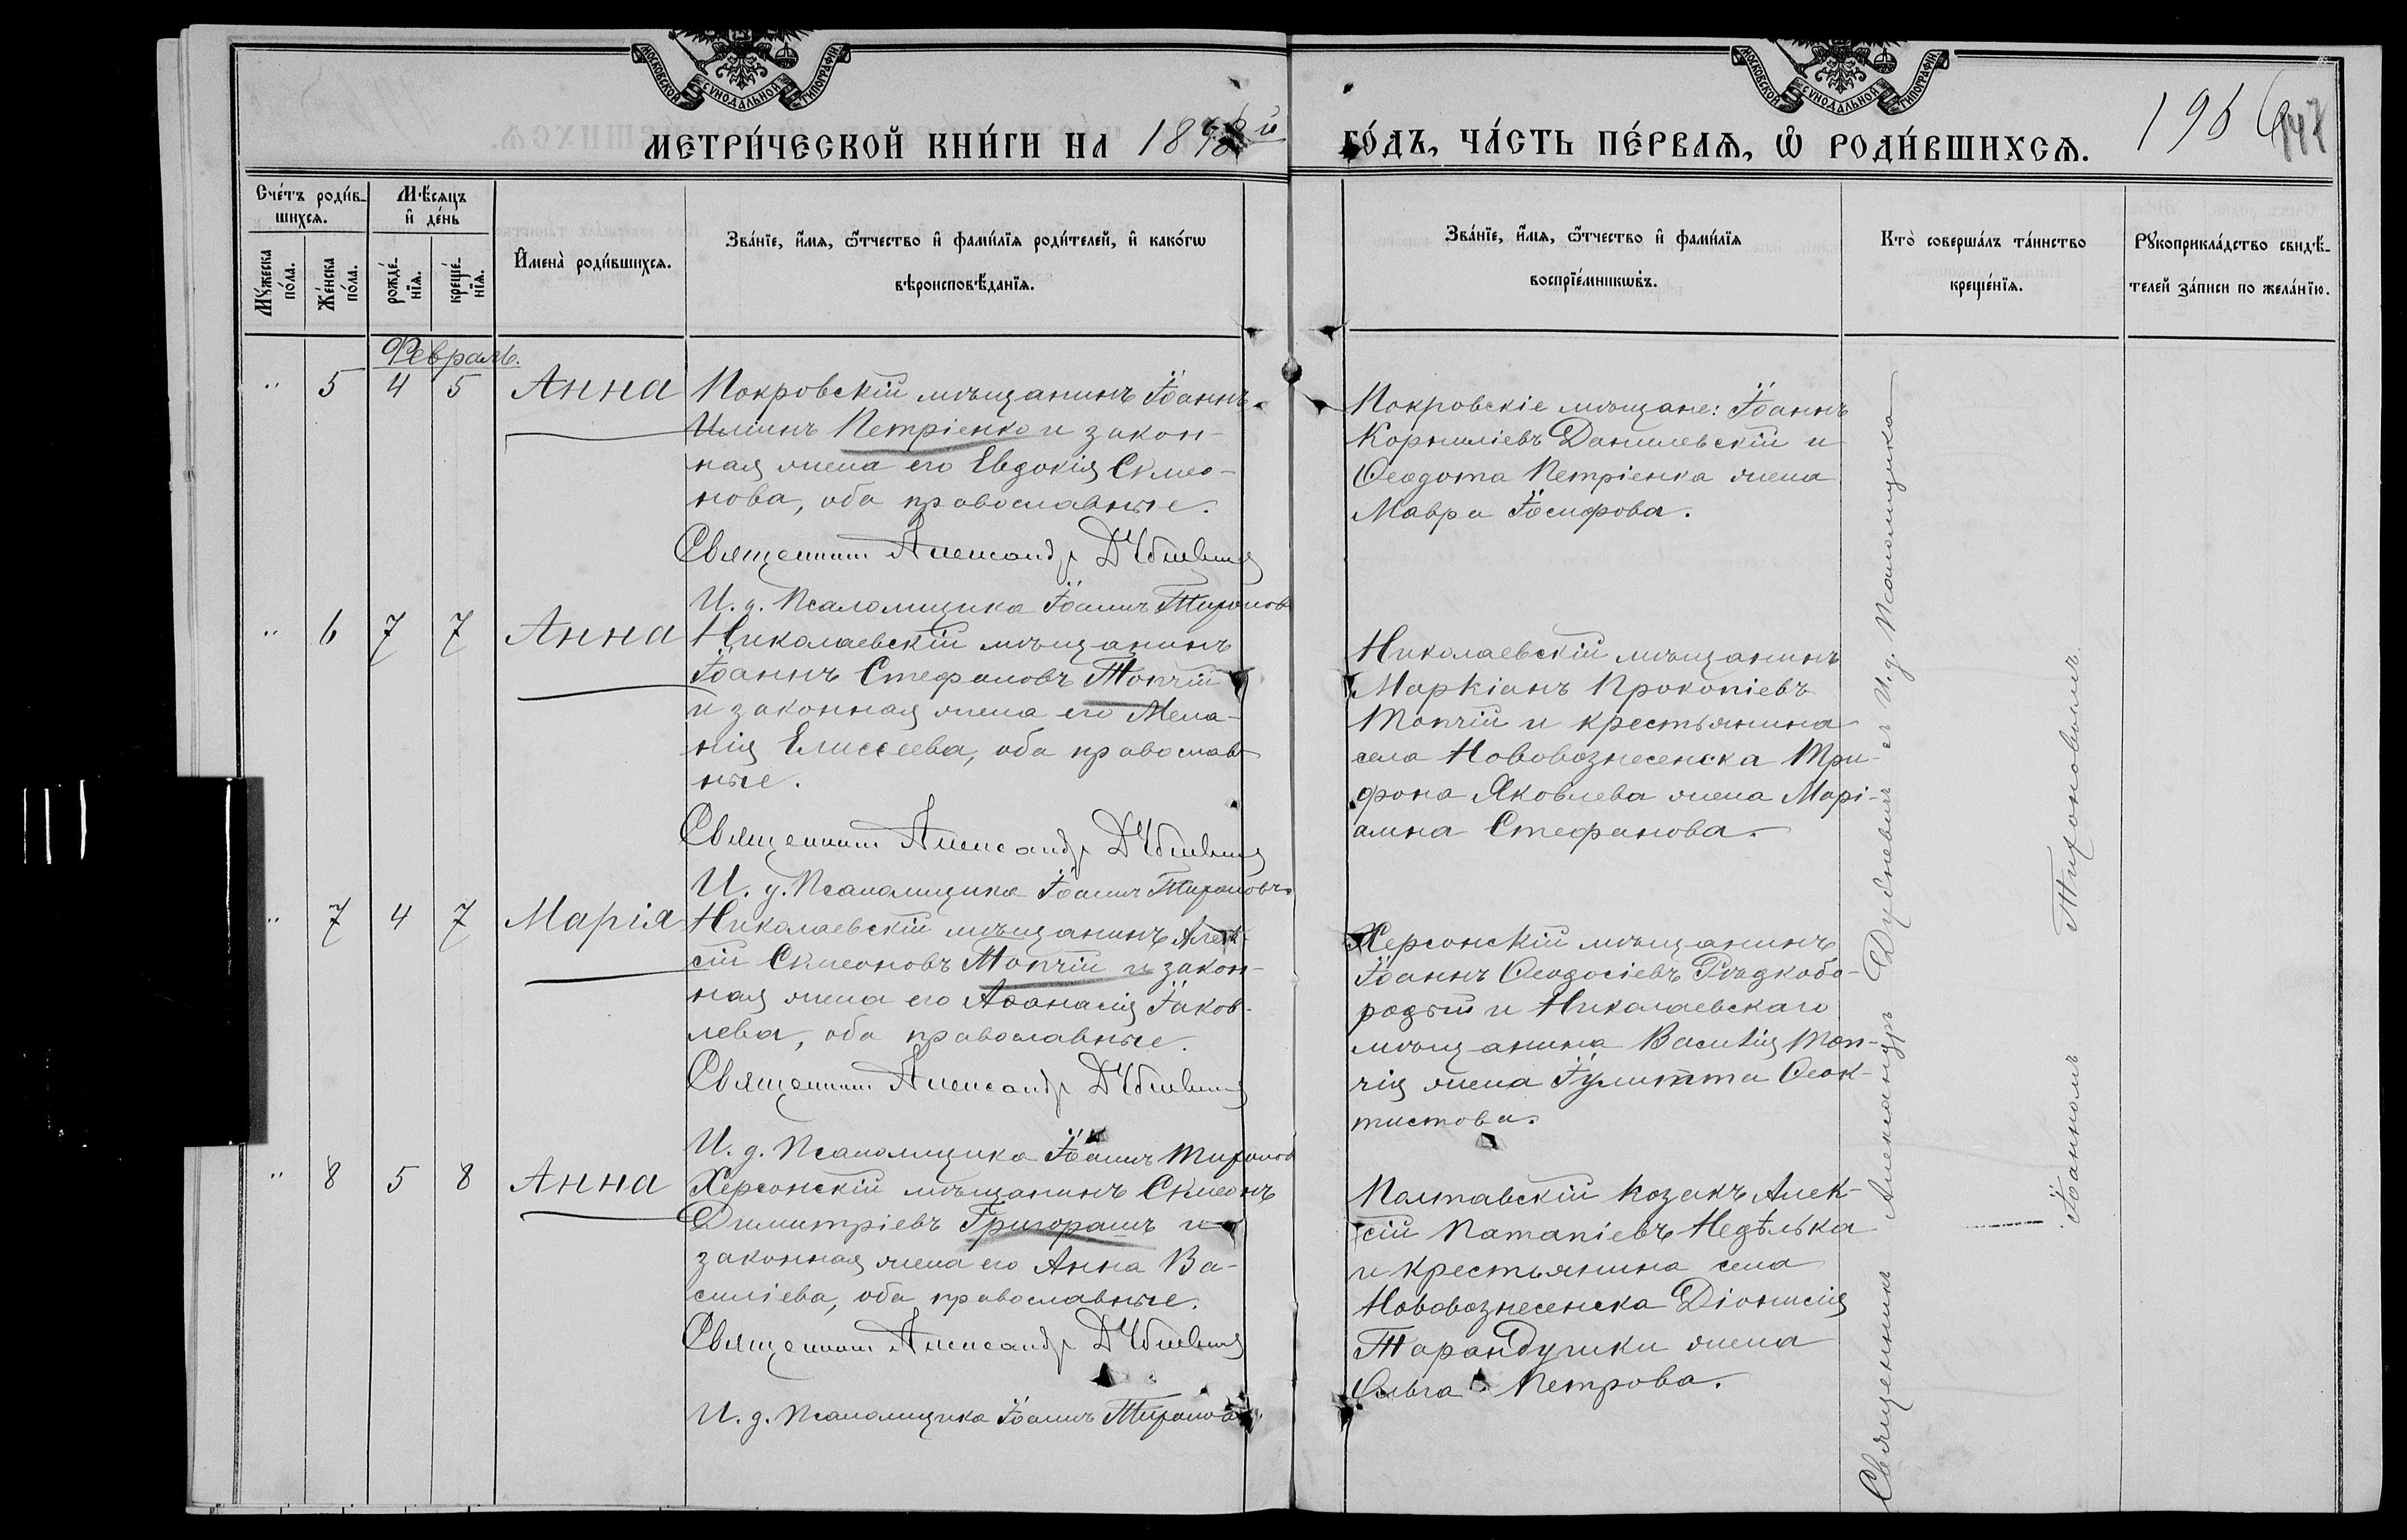 МОСКОВСКОЙ СѴНОДАЛЬНОЙ ТИПОГРАФІИ
МОСКОВСКОЙ СѴНОДАЛЬНОЙ ТИПОГРАФІИ
МЕТРИ́ЧЕСКОЙ КНИ́ГИ НА
ГО́ДЪ, ЧА́СТЬ ПЕ́РВАѦ, Ѡ҆ РОДИ́ВШИХСѦ.
Сче́тъ роди́в-
шихсѧ.
Мꙋ́жеска
по́ла.
Же́нска
по́ла.
Мѣ́сѧцъ
и҆ де́нь
рожде́-
нїѧ.
креще́-
нїѧ.
И҆мена̀ роди́вшихсѧ.
Зва́нїе, и҆́мѧ, ѻ҆́тчество и҆ фами́лїѧ роди́телей, и҆ како́гѡ
вѣроисповѣ́данїѧ.
Зва́нїе, и҆́мѧ, ѻ҆́тчество и҆ фами́лїѧ
воспрїе́мникѡвъ.
Кто̀ соверша́лъ та́инство
креще́нїѧ.
Рꙋкоприкла́дство свидѣ́-
телей за́писи по жела́нїю.
Февраль.
" 5 4 5 Анна
Покровскій мѣщанинъ Іоаннъ
Иліинъ Петріенко и закон-
ная жена его Евдокія Симео-
нова, оба православные.
Священникъ Александръ Дубневичъ
И. д. Псаломщика Іоаннъ Тихоновъ
Покровскіе мѣщане: Іоаннъ
Корниліевъ Данилевскій и
Ѳеодота Петріенка жена
Мавра Іосифова.
" 6 7 7 Анна
Николаевскій мѣщанинъ
Іоаннъ Стефановъ Топчій
и законная жена его Мела-
нія Елиссеева, оба православ-
ные.
Священникъ Александръ Дубневичъ
И. д. Псаломщика Іоаннъ Тихоновъ
Николаевскій мѣщанинъ
Маркіанъ Прокопіевъ
Топчій и крестьянина
села Нововознесенска Три-
фона Яковлева жена Марі-
амна Стефанова.
" 7 4 7 Марія
Николаевскій мѣщанинъ Алек-
сій Симеоновъ Топчій и закон-
ная жена его Аѳанасія Іаков-
лева, оба православные.
Священникъ Александръ Дубневичъ
И. д. Псаломщика Іоаннъ Тихоновъ
Херсонскій мѣщанинъ
Іоаннъ Ѳеодосіевъ Рѣдкобо-
родый и Николаевскаго
мѣщанина Василія Топ-
чія жена Іулитта Ѳеок-
тистова.
" 8 5 8 Анна
Херсонскій мѣщанинъ Симеонъ
Димитріевъ Григорашъ и
законная жена его Анна Ва-
силіева, оба православные.
Священникъ Александръ Дубневичъ
И. д. Псаломщика Іоаннъ Тихоновъ
Полтавскій козакъ Алек-
сій Патапіевъ Недѣлька
и крестьянина села
Нововознесенска Діонисія
Тарандушки жена
Ольга Петрова.
Священникъ Александръ Дубневичъ съ И. д. Псаломщика
Іоанномъ Тихоновымъ